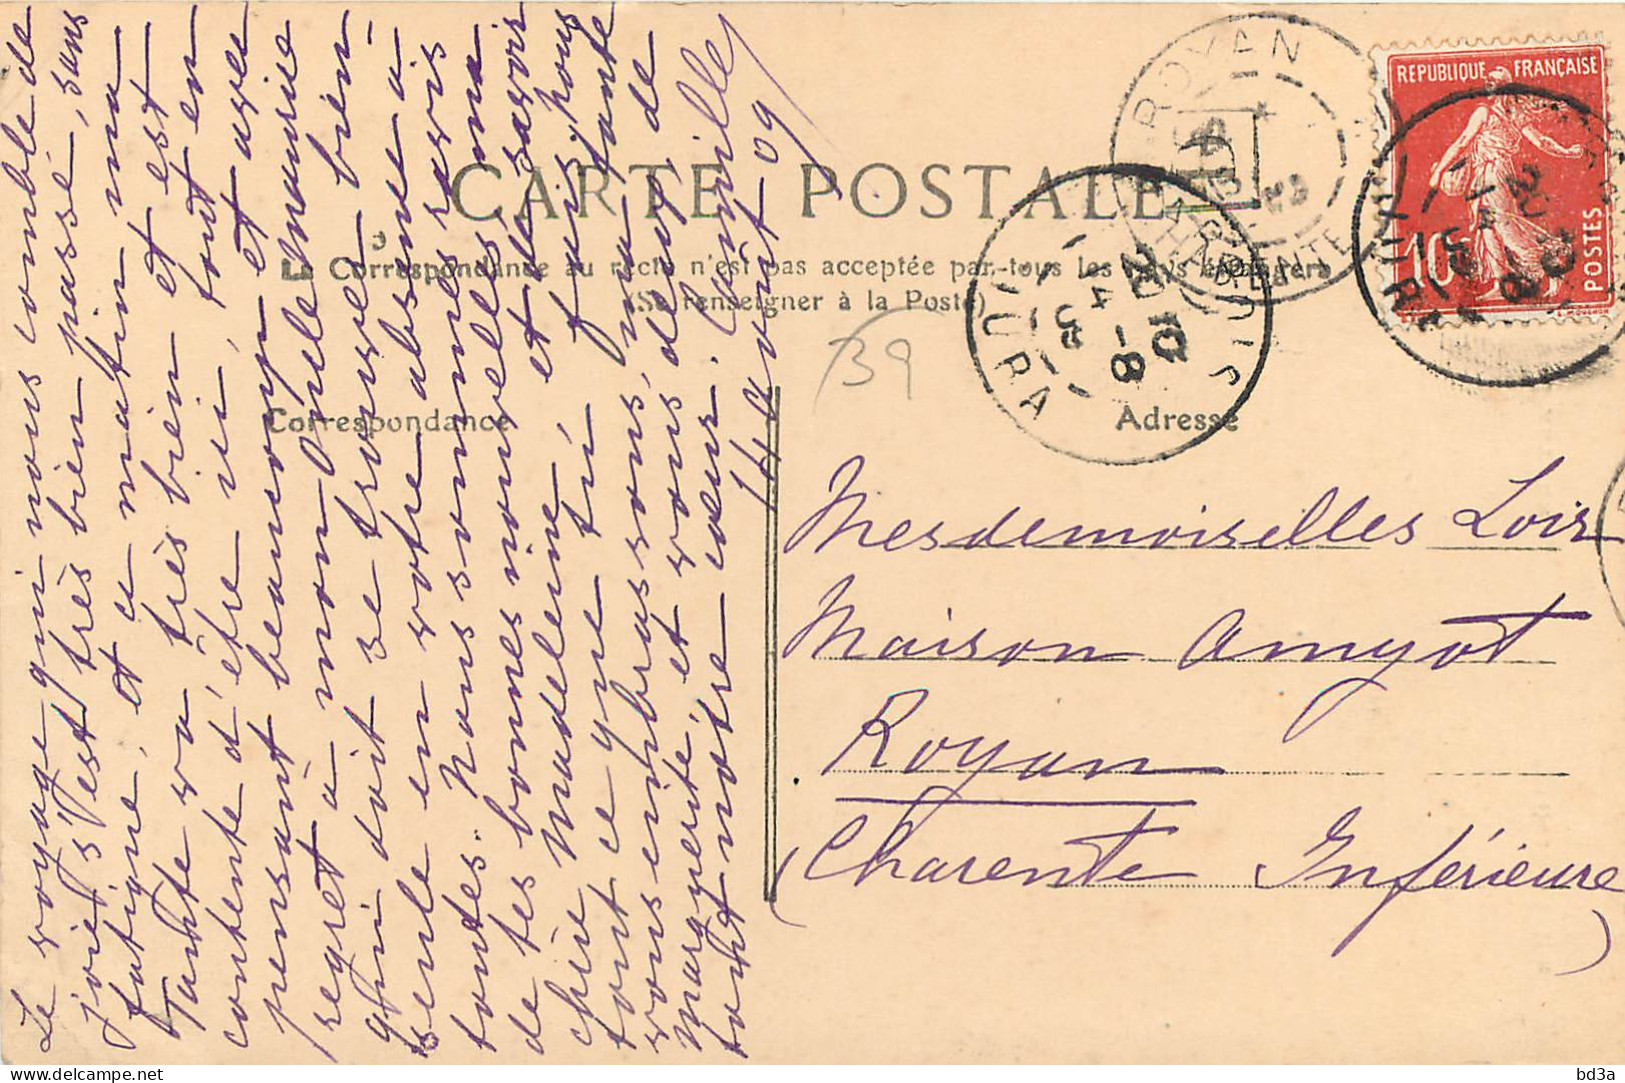 CARTE POSTALE
La Correspondance au recto n'est pas acceptée par tous les pays étrangers
(Se renseigner à la Poste)
Correspondance
Adresse
39
REPUBLIQUE FRANÇAISE
10c
POSTES
ROYAN
CHARENTE
JURA
10-8
Le voyage qui nous comble de
joie s'est très bien passé, sans
fatigue, et ce matin ma
Tante va très bien et est
contente d'être ici, tout en
pensant beaucoup et avec
regret à mon Oncle Maurice
qui doit se trouver bien
seule en votre absence à
toutes. Nous sommes ravis
de tes bonnes nouvelles ma
chère Madeleine, et de savoir
tout ce que tu fais, pous
vous embrassons, ma tante
Marguerite, et vous deux, de
tout notre cœur. Camille
14 Août 09
Mesdemoiselles Loir
Maison Amyot
Royan
(Charente Inférieure)
bd3a